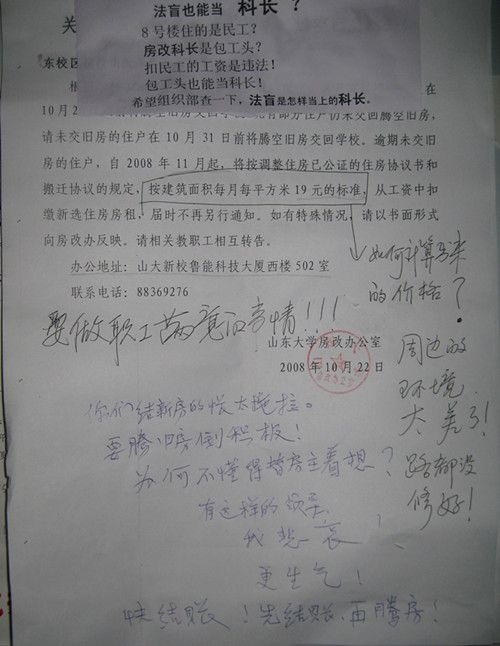 法盲也能当 科长 ?
8 号楼住的是民工?
房改科长是包工头?
扣民工的工资是违法!
包工头也能当科长!
希望组织部查一下,法盲是怎样当上的科长。
关
东校区
在
10 月 2
请未交旧房的住户在 10 月 31 日前将腾空旧房交回学校。逾期未交旧
房的住户,自 2008 年 11 月起,将按调整住房已公证的住房协议书和
搬迁协议的规定,按建筑面积每月每平方米 19 元的标准,从工资中扣
缴新选住房房租,届时不再另行通知。如有特殊情况,请以书面形式
向房改办反映。请相关教职工相互转告。
办公地址:山大新校鲁能科技大厦西楼 502 室
联系电话:88369276
如何计算出来
的价格?
要做职工满意的事情!!!
山东大学房改办公室
2008 年 10 月 22 日
周边的
环境
太差了!
路都没
修好!
你们结新房的帐太拖拉。
要腾旧房倒积极!
为何不懂得替房主着想?
有这样的领导,
我悲哀!
更生气!
快结账!先结账,再腾房!